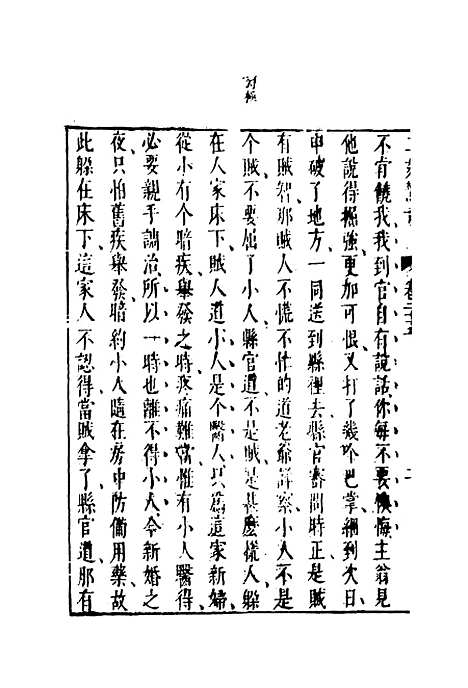 對頭
二刻驚奇 卷二十五 二
不肯饒我我到官自有說話你每不要懊悔主翁見
他說得掘強更加可恨又打了幾個巴掌綑到次日
申破了地方一同送到縣裡去縣官審問時正是賊
有賊智那賊人不慌不忙的道老爺詳察小人不是
个賊不要屈了小人縣官道不是賊是甚麼樣人躲
在人家床下賊人道小人是个醫人只爲這家新婦
從小有个暗疾舉發之時疼痛難當惟有小人醫得
必要親手調治所以一時也離不得小人今新婚之
夜只怕舊疾舉發暗約小人隨在房中防備用藥故
此躲在床下這家人不認得當賊拿了縣官道那有